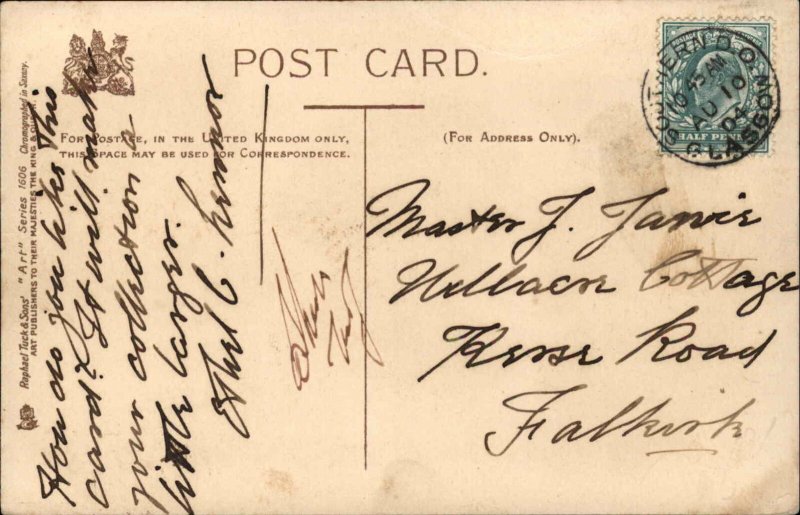 POST CARD.
FOR POSTAGE, IN THE UNITED KINGDOM ONLY,
THIS SPACE MAY BE USED FOR CORRESPONDENCE.
(FOR ADDRESS ONLY).
Raphael Tuck & Sons' "Art" Series 1606 Chromographed in Saxony.
ART PUBLISHERS TO THEIR MAJESTIES THE KING & QUEEN.
How do you like this
card? It will make
your collection a
little larger.
Ethel C.
Master J. Jarvie
Cottage
Kerse Road
Falkirk
POSTAGE
HALF PENNY
SOUTHERN D.O.
10 45 AM
AU 10
04
GLASGOW